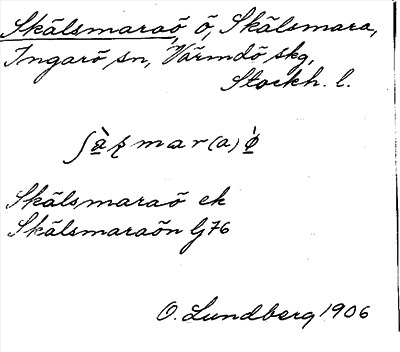 Skälsmaraö, ö, Skälsmara,
Ingarö sn, Värmdö skg,
Stockh. l.
Skälsmaraö ek
Skälsmaraön Gj76
O. Lundberg 1906